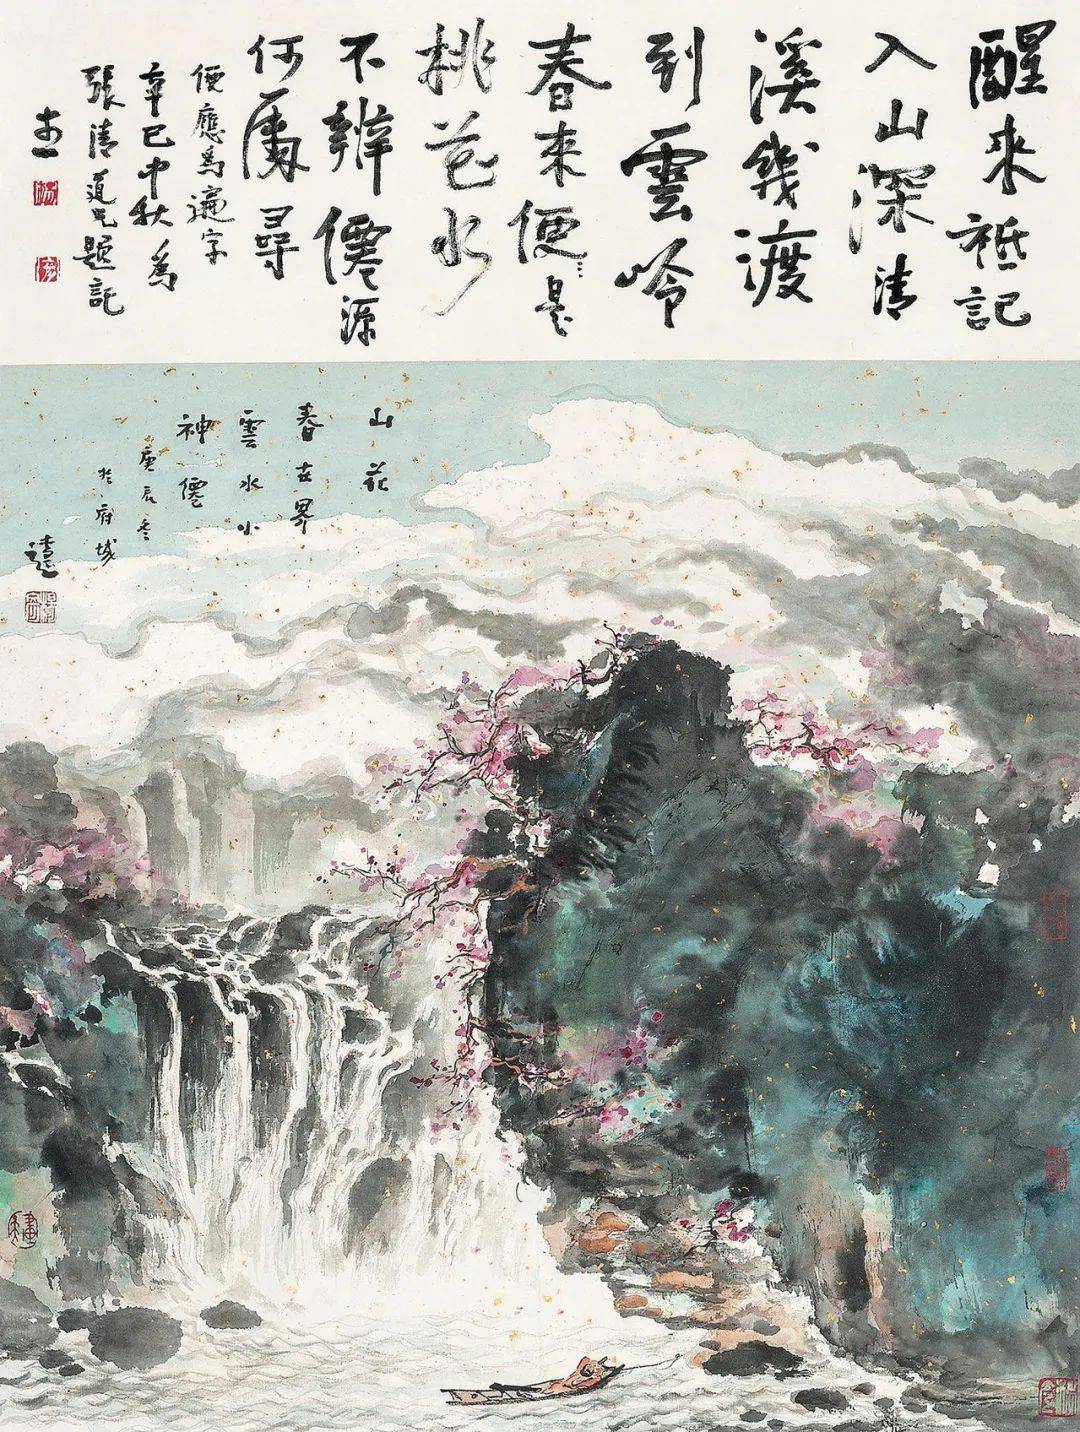 醒来祗記
入山深清
溪幾渡
到雲岭
春来便是
桃花水
不辨僊源
何處尋
便應為遍字
辛巳中秋為
張清道兄題記
山花
春世界
雲水小
神僊
庚辰冬
於府城